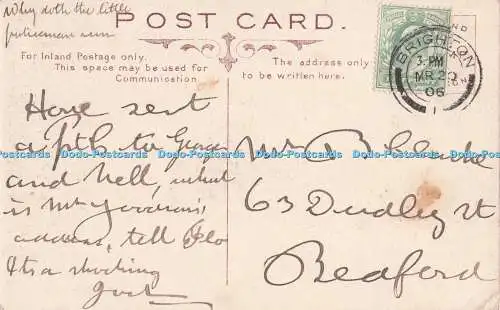 Why doth the little
fisherman run
POST CARD.
For Inland Postage only.
This space may be used for
Communication.
The address only
to be written here.
BRIGHTON
3. PM
MR 20
06
1
Have sent
a Pth to George
and Nell, what
is Mr Goodran's
address, tell Flo
Its a shocking
Mr B Clarke
63 Dudley St
Bedford
Dodo-Postcards Dodo-Postcards Dodo-Postcards Dodo-Postcards Dodo-Postcards